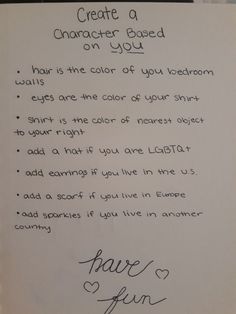 Create a
Character Based
on you
• hair is the color of you bedroom
walls
• eyes are the color of your shirt
• shirt is the color of nearest object
to your right
• add a hat if you are LGBTQ+
• add earrings if you live in the u.s.
• add a scarf if you live in Europe
• add sparkles if you live in another
country
have
fun